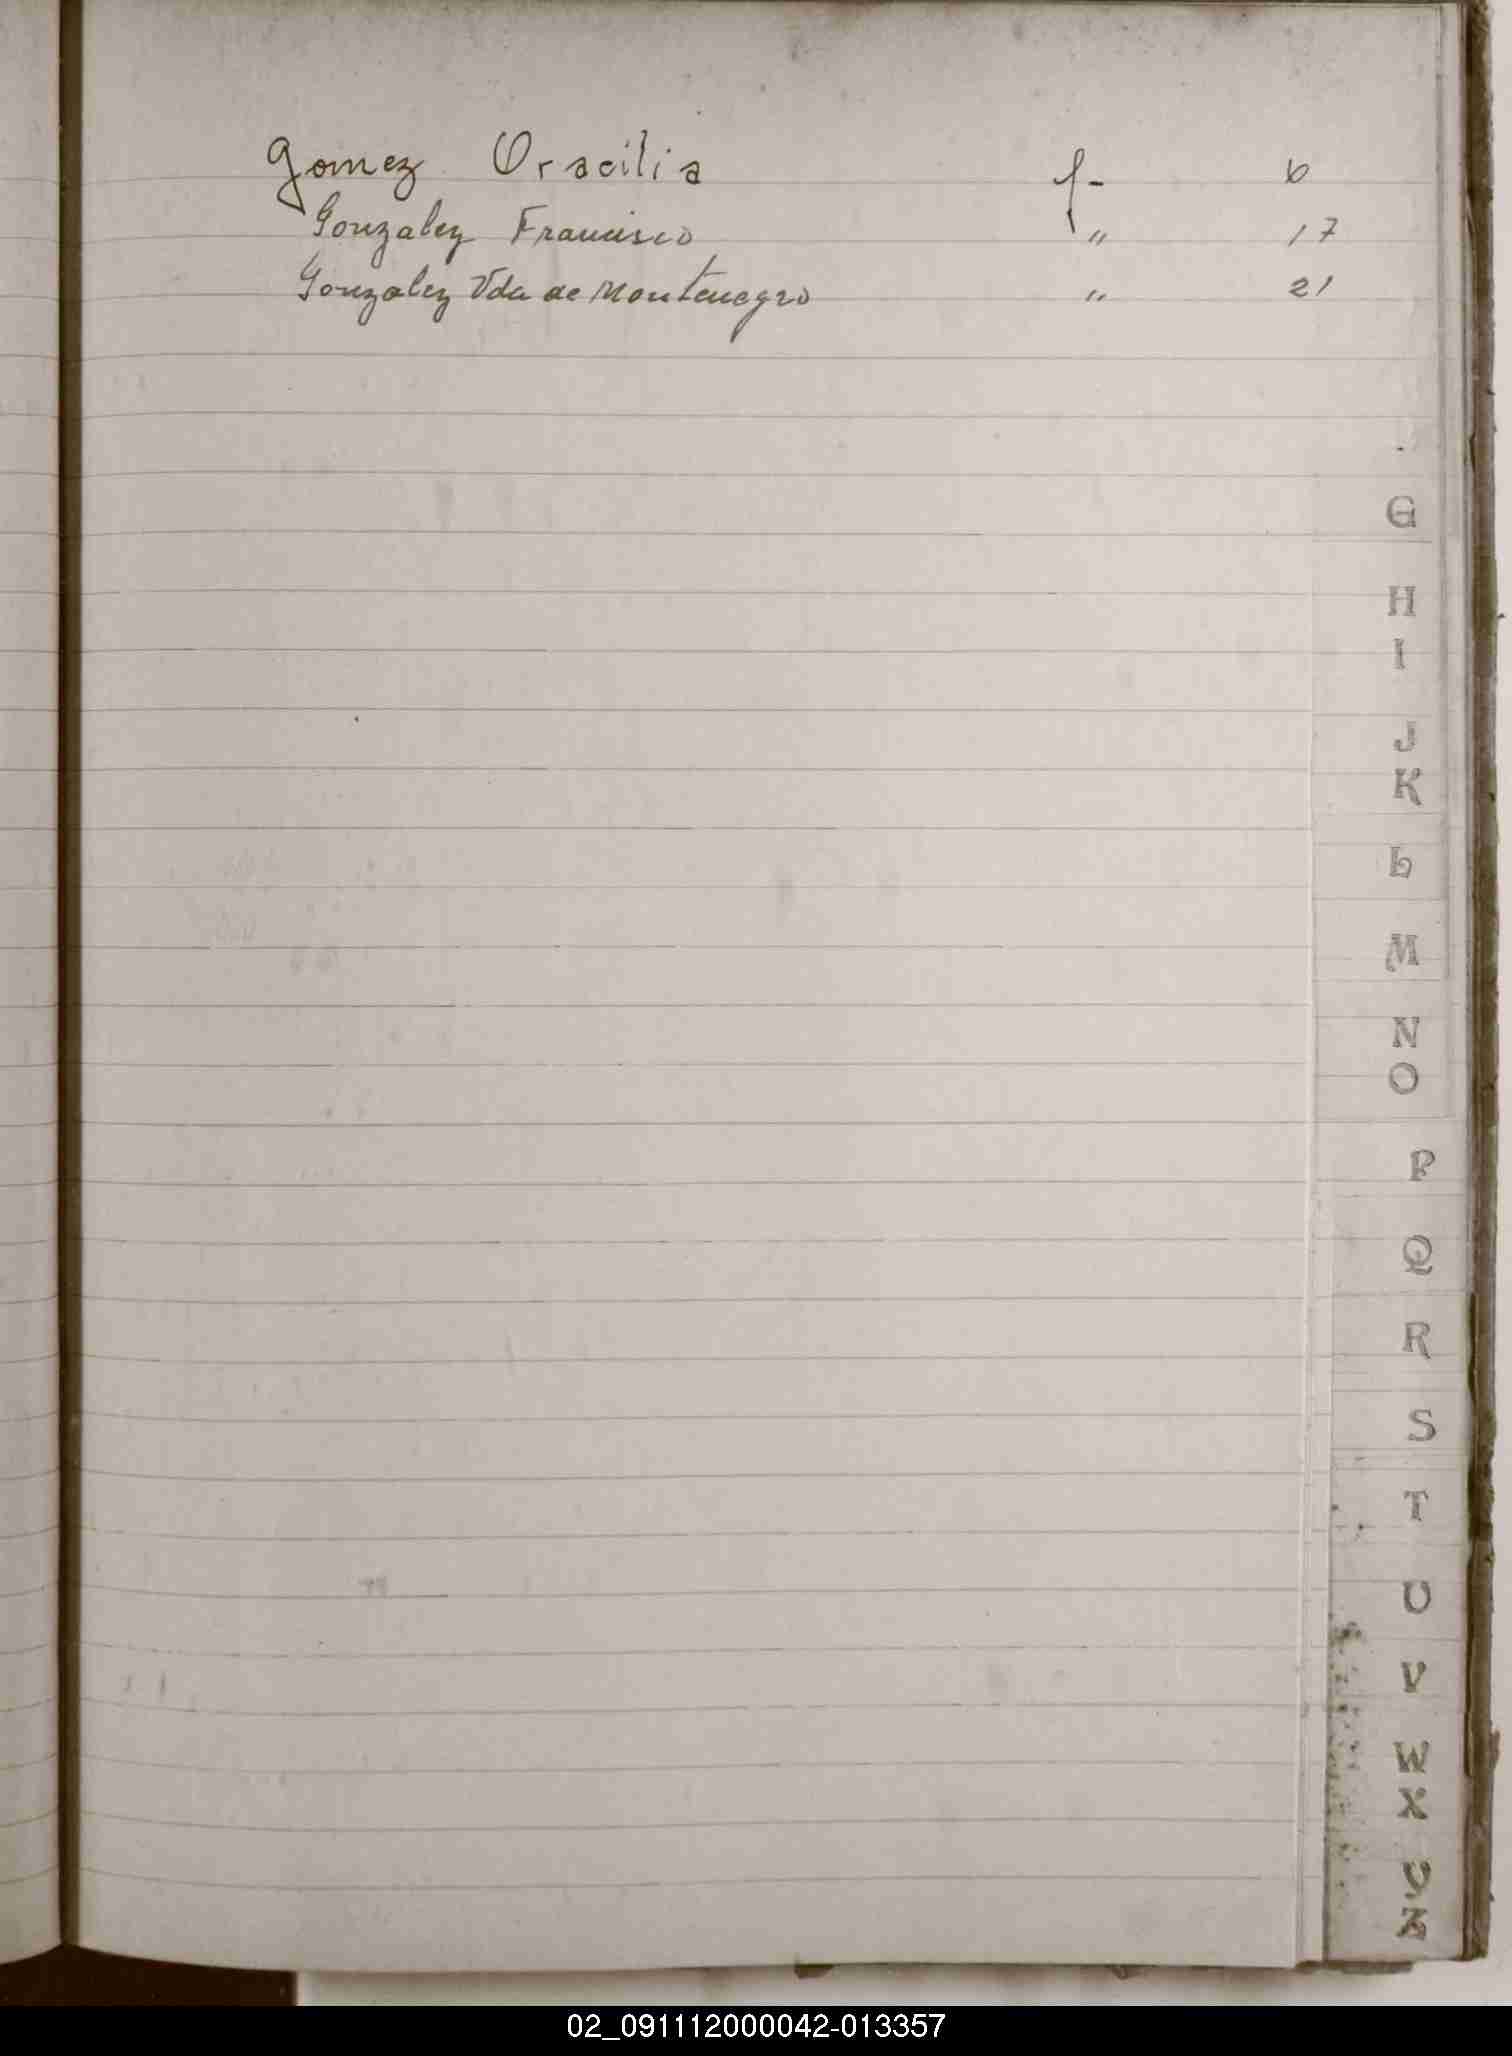 Gomez Oracilia f- 6
Gonzalez Francisco " 17
Gonzalez Vda de Montenegro " 21
G
H
I
J
K
L
M
N
O
P
Q
R
S
T
U
V
W
X
Y
Z
02_091112000042-013357